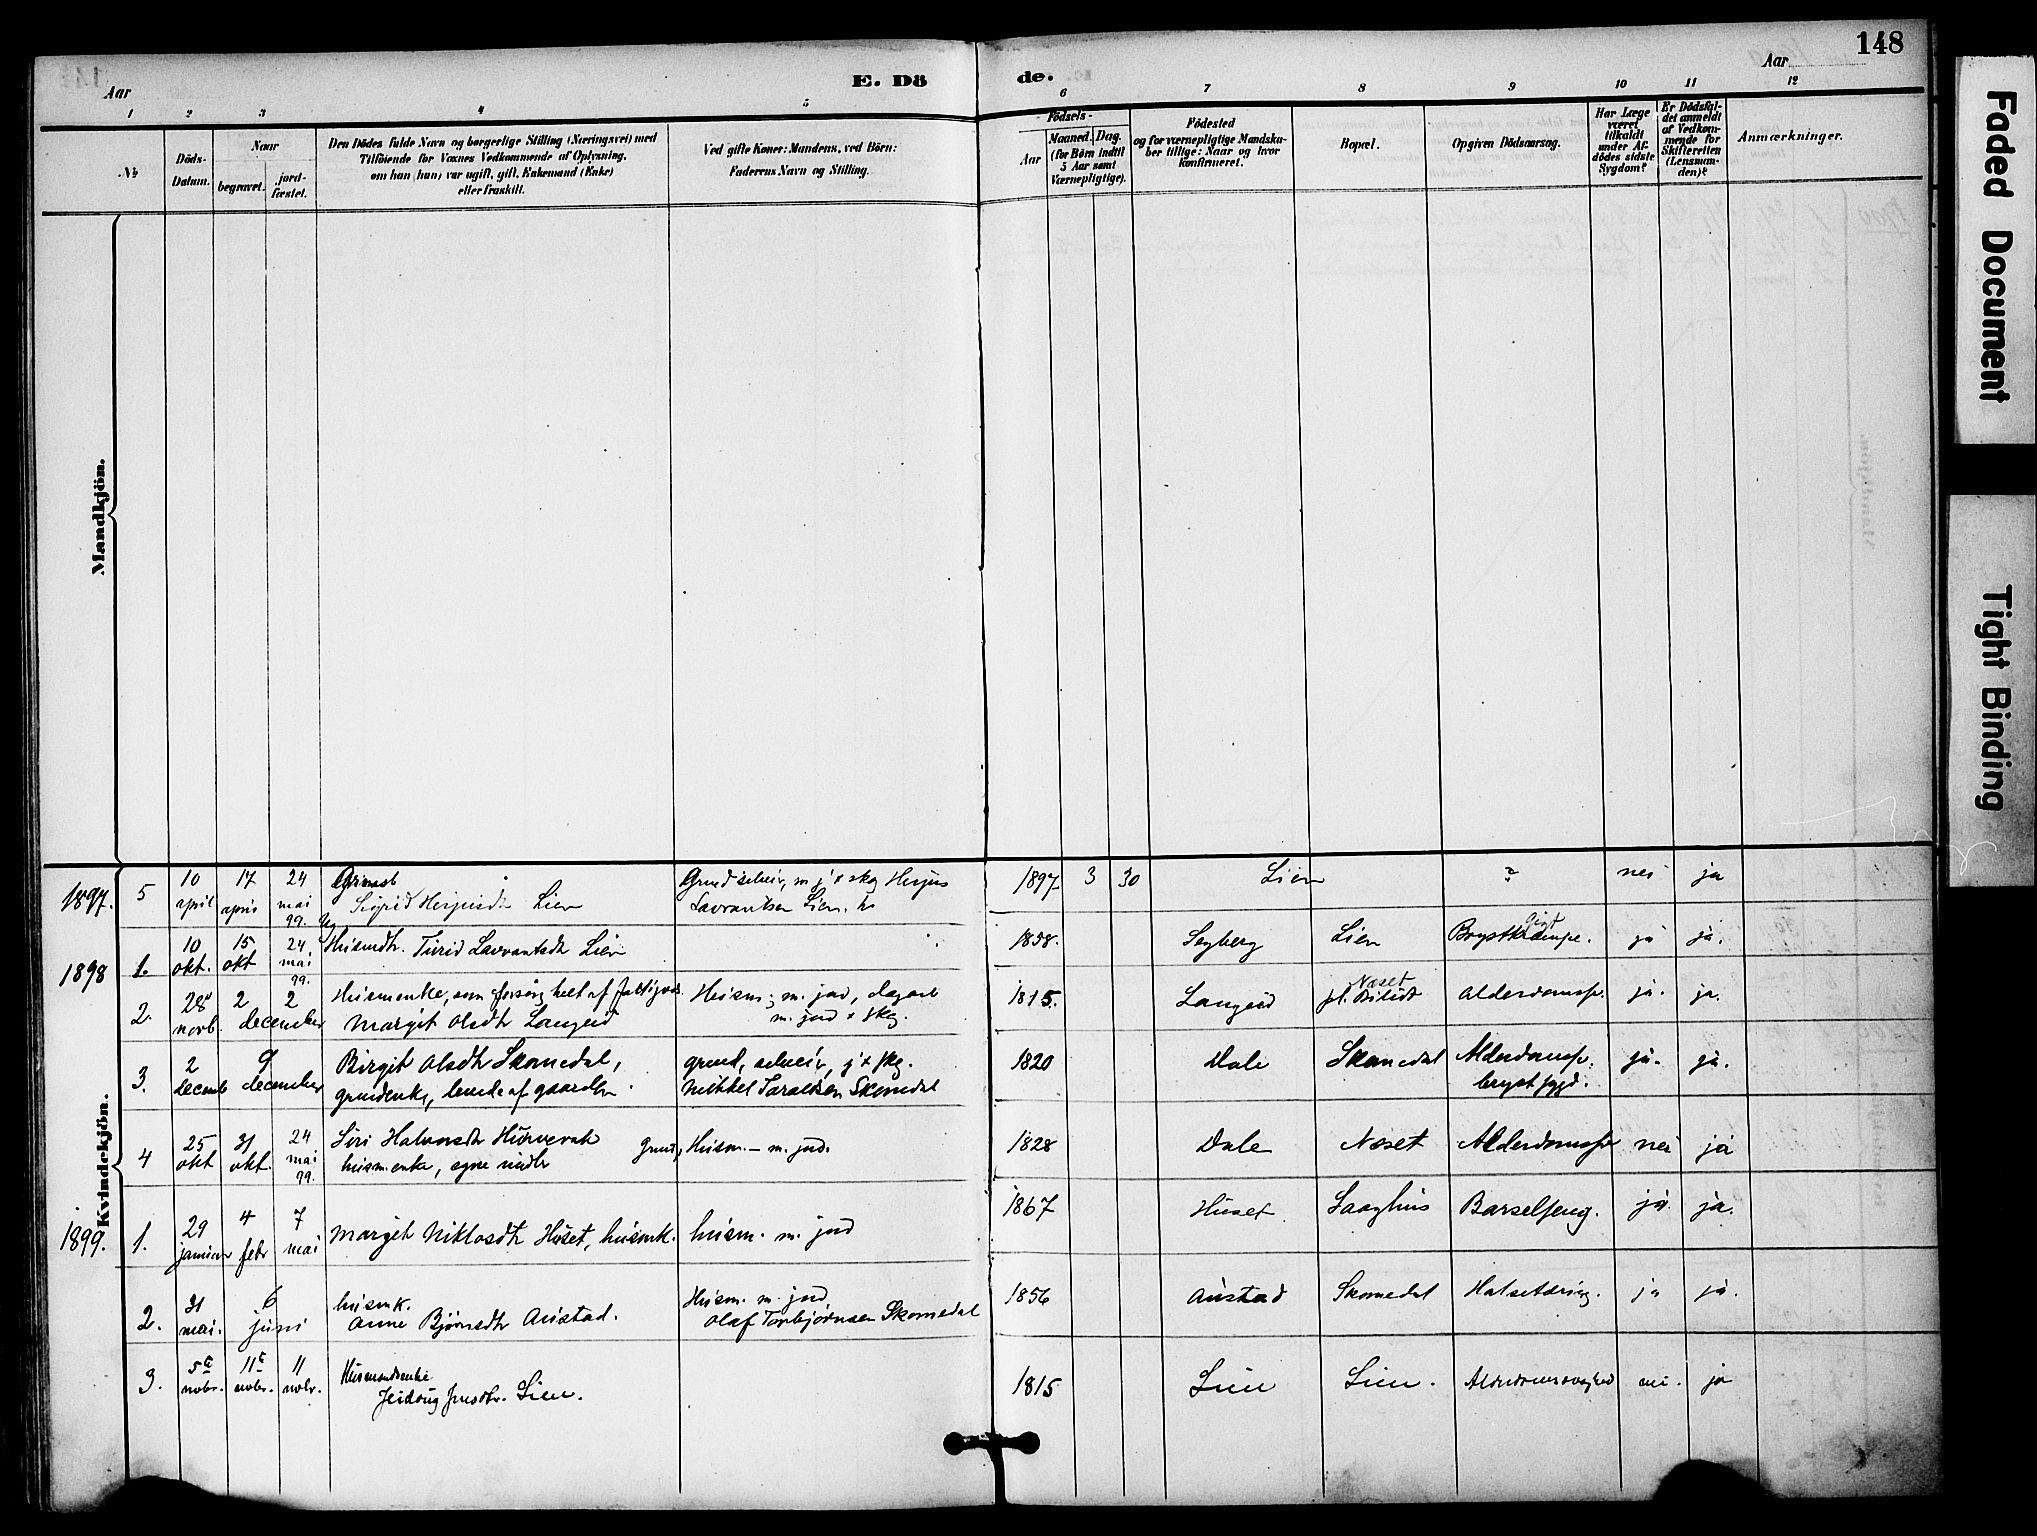 148
Aar
E. Dö
de.
Aar
1 2 3 4 5 6 7 8 9 10 11 12
№
Döds-
Datum.
Naar
begravet.
jord-
fæstet.
Den Dödes fulde Navn og borgerlige Stilling (Næringsvei) med
Tilföiende for Voxnes Vedkommende af Oplysning,
om han (hun) var ugift, gift, Enkemand (Enke)
eller fraskilt.
Ved gifte Koner: Mandens, ved Börn:
Faderens Navn og Stilling.
Födsels-
Aar
Maaned. Dag.
(for Börn indtil
5 Aar samt
Værnepligtige).
Födested
og for værnepligtige Mandska-
ber tillige: Naar og hvor
konfirmeret.
Bopæl.
Opgiven Dödsaarsag.
Har Læge
været
tilkaldt
under Af-
dödes sidste
Sygdom?
Er Dödsfal-
det anmeldt
af Vedkom-
mende for
Skifteretten
(Lensman-
den)?
Anmærkninger.
Mandkjön.
Kvindekjön.
1897. 5 10 april 17 april 24 mai 99.
Sigrid Herjusdtr Lien
m j & skog Herjus
Lavrantsen Lien.
1897 3 30 Lien ? nei ja
1898 1. 10 okt. 15 okt 24 mai 99.
Husmdtr. Turid Lavrantsdtr Lien
1858. Lien Brystkrampe. ja ja.
2. 28 novb. 2 2 december
Husmenke, som forsørg helt af
Margit Olsdtr Langeid
Husm. m. jord,
m. jord & skog.
1815. Langeid Næset Alderdomssv. ja. ja.
3. 2 decemb 9 december
Birgit Olsdtr Skomedal,
gaardenke, levede af gaarden.
j & skg.
Mikkel Taraldsen Skomedal
1820 Dale Skomedal Alderdomssv. ja. ja.
brystsygd.
4 25 okt 31 okt. 24 mai 99.
Siri Halvorsdtr
husmenke, egne midler
Husm. – m. jord.
1828 Dale Næset Alderdomssv nei ja
1899. 1. 29 januar 4 febr 7 mai
Margit Niklosdtr Huset, husmk.
husm. m. jord
1867 Huset. Barselseng. ja. ja.
2. 31 mai. 6 juni
husmk.
Anne Bjørnsdtr Austad.
Husm. m. jord
Olaf Torbjørnsen Skomedal
1856 Austad Skomedal Halsetæring. ja ja.
3. 5te novbr. 11te novbr. 11 novbr.
Husmandsenke
Lien.
1815 Lien Lien. Alderdomssvaghed nei ja
Faded Document
Tight Binding